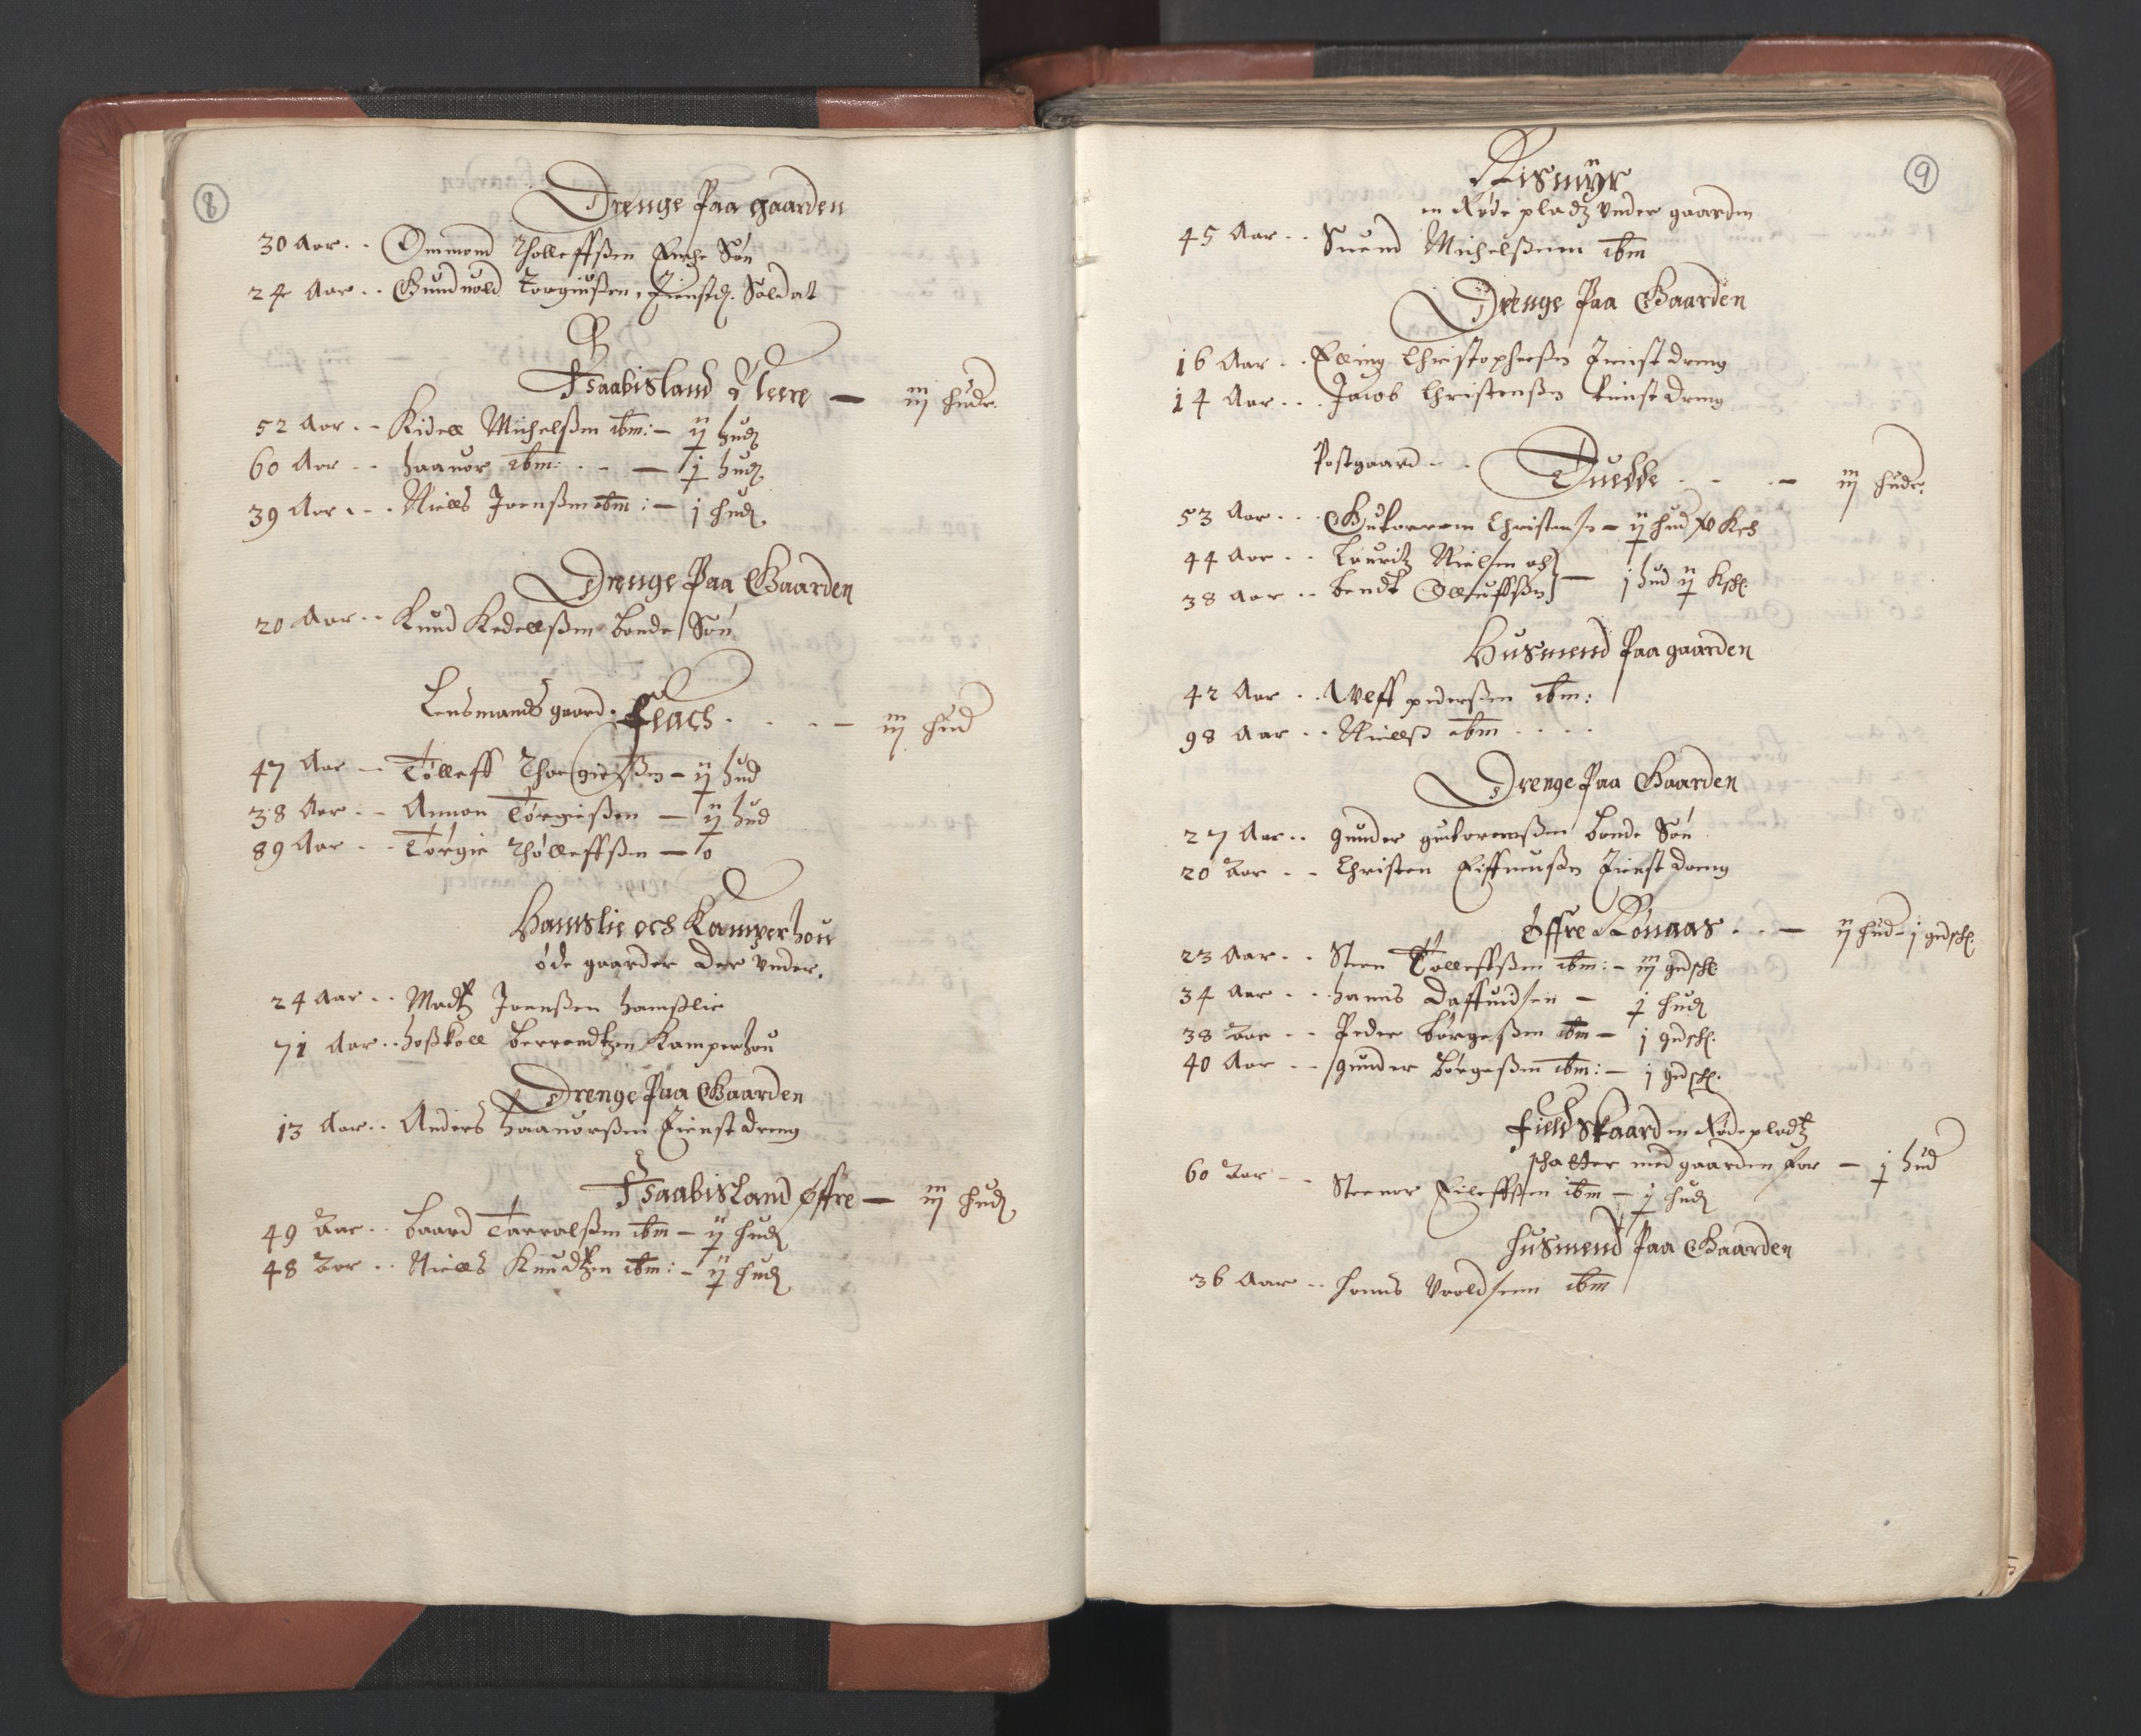 8
Drenge Paa gaarden
30 Aar .. Ommond Tholleffßen Enche Søn
24 Aar .. Gunduold Torgiußen, Tienstd. Soldat
Tsaabisland Neere — iij huder
52 Aar .. Kidell Michelßen ibm: — ij hud
60 Aar .. Haauor ibm: .. — j hud
39 Aar .. Niells Joenßen ibm: — j hud
Drenge Paa Gaarden
20 Aar .. Knud Kedellßen bonde Søn
Lensmands gaard. Flach . . . — iij hud
47 Aar — Tolleff Thorgießßen — ij hud
38 Aar .. Annon Torgießen — ij hud
89 Aar .. Torgie Tholleffßen — 0
Hamslie och Kamperhou
øde gaarder der under.
24 Aar .. Madtz Joenßen Hamßlie
71 Aar .. Hoßkoll Berrendtzen Kamperhou
Drenge Paa Gaarden
13 Aar .. Anders Haauorßen Tienst dreng
Tsaabisland øffre — iij hud
49 Aar .. Baard Tarralßen ibm — ij hud
48 Aar .. Niells Knudtzen ibm: — ij hud
9
Rismyr
en Røde pladtz under gaarden
45 Aar .. Suend Michelßenn ibm
Drenge Paa Gaarden
16 Aar .. Elling Christopherßen Tienst dreng
14 Aar .. Jacob Christenßen tienst dreng
Postgaard .. Duedde . . — iij huder
53 Aar .. Gutorrom Christensen — ij hud
44 Aar .. Lauritz Nielsen och
38 Aar .. Bendt Olluffßen — j hud ij Ksk.
Husmend Paa gaarden
42 Aar .. Wleff pederßen ibm:
98 Aar .. Niellß ibm . . . .
Drenge Paa Gaarden
27 Aar .. gunder gutoremßen bonde Søn
20 Aar .. Christen Tienst dreng
øffre Rønaas . . — ij hud - j gedsk.
23 Aar .. Steen Tolleffßen ibm: — iij gedsk
34 Aar .. Hanns Daffuidsen — j hud
38 Aar .. Peder Børgeßen ibm — j gedsk.
40 Aar .. gunder Børgeßen ibm: — j gedsk.
Field Skaard en Røde pladtz
schatter med gaarden for — j hud
60 Aar .. Steenor Eileffßen ibm — j hud
Husmend Paa Gaarden
36 Aar .. Hanns Uroldsenn ibm